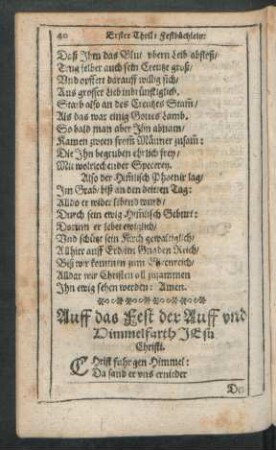 40 Erster Theil: Festbüchlein:
Daß Ihm das Blut vbern Leib abfloß/
Trug selber auch sein Creutze groß/
Vnd opffert darauff willig sich/
Aus grosser Lieb inbrünstiglich.
Starb also an des Creutzes Stam̃/
Als das war einig Gottes Lamb.
So bald man aber Ihn abnam/
Kamen zween from̃ Männer zusam̃:
Die Ihn begruben ehrlich frey/
Mit wolriechender Specerey.
Also der Him̃lisch Phoenix lag/
Im Grab/ biß an den dritten Tag:
Alldo er wider lebend wurd/
Durch sein ewig Him̃lisch Geburt:
Darum̃ er lebet ewiglich/
Vnd schützt sein Kirch gewaltiglich/
Allhier auff Erd im Gnaden Reich/
Biß wir kommen zum Ehrenreich/
Alldar wir Christen all zusammen
Ihn ewig sehen werden: Amen.
Auff das Fest der Auff vnd
Himmelfarth JEsu
Christi.
CHrist fuhr gen Himmel:
Da sand er vns ernieder